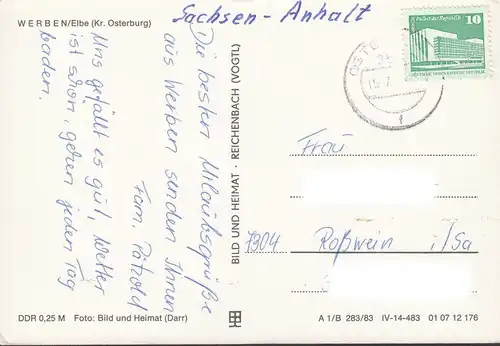 WERBEN/Elbe (Kr. Osterburg)
Sachsen-Anhalt
Die besten Urlaubsgrüße
aus Werben senden Ihnen
Fam. Pätzold
Uns gefällt es gut, Wetter
ist schön, gehen jeden Tag
baden.
BILD UND HEIMAT · REICHENBACH (VOGTL)
Palast der Republik
10
DEUTSCHE DEMOKRATISCHE REPUBLIK
Frau
7304 Roßwein i/Sa
DDR 0,25 M Foto: Bild und Heimat (Darr)
A 1/B 283/83 IV-14-483 01 07 12 176